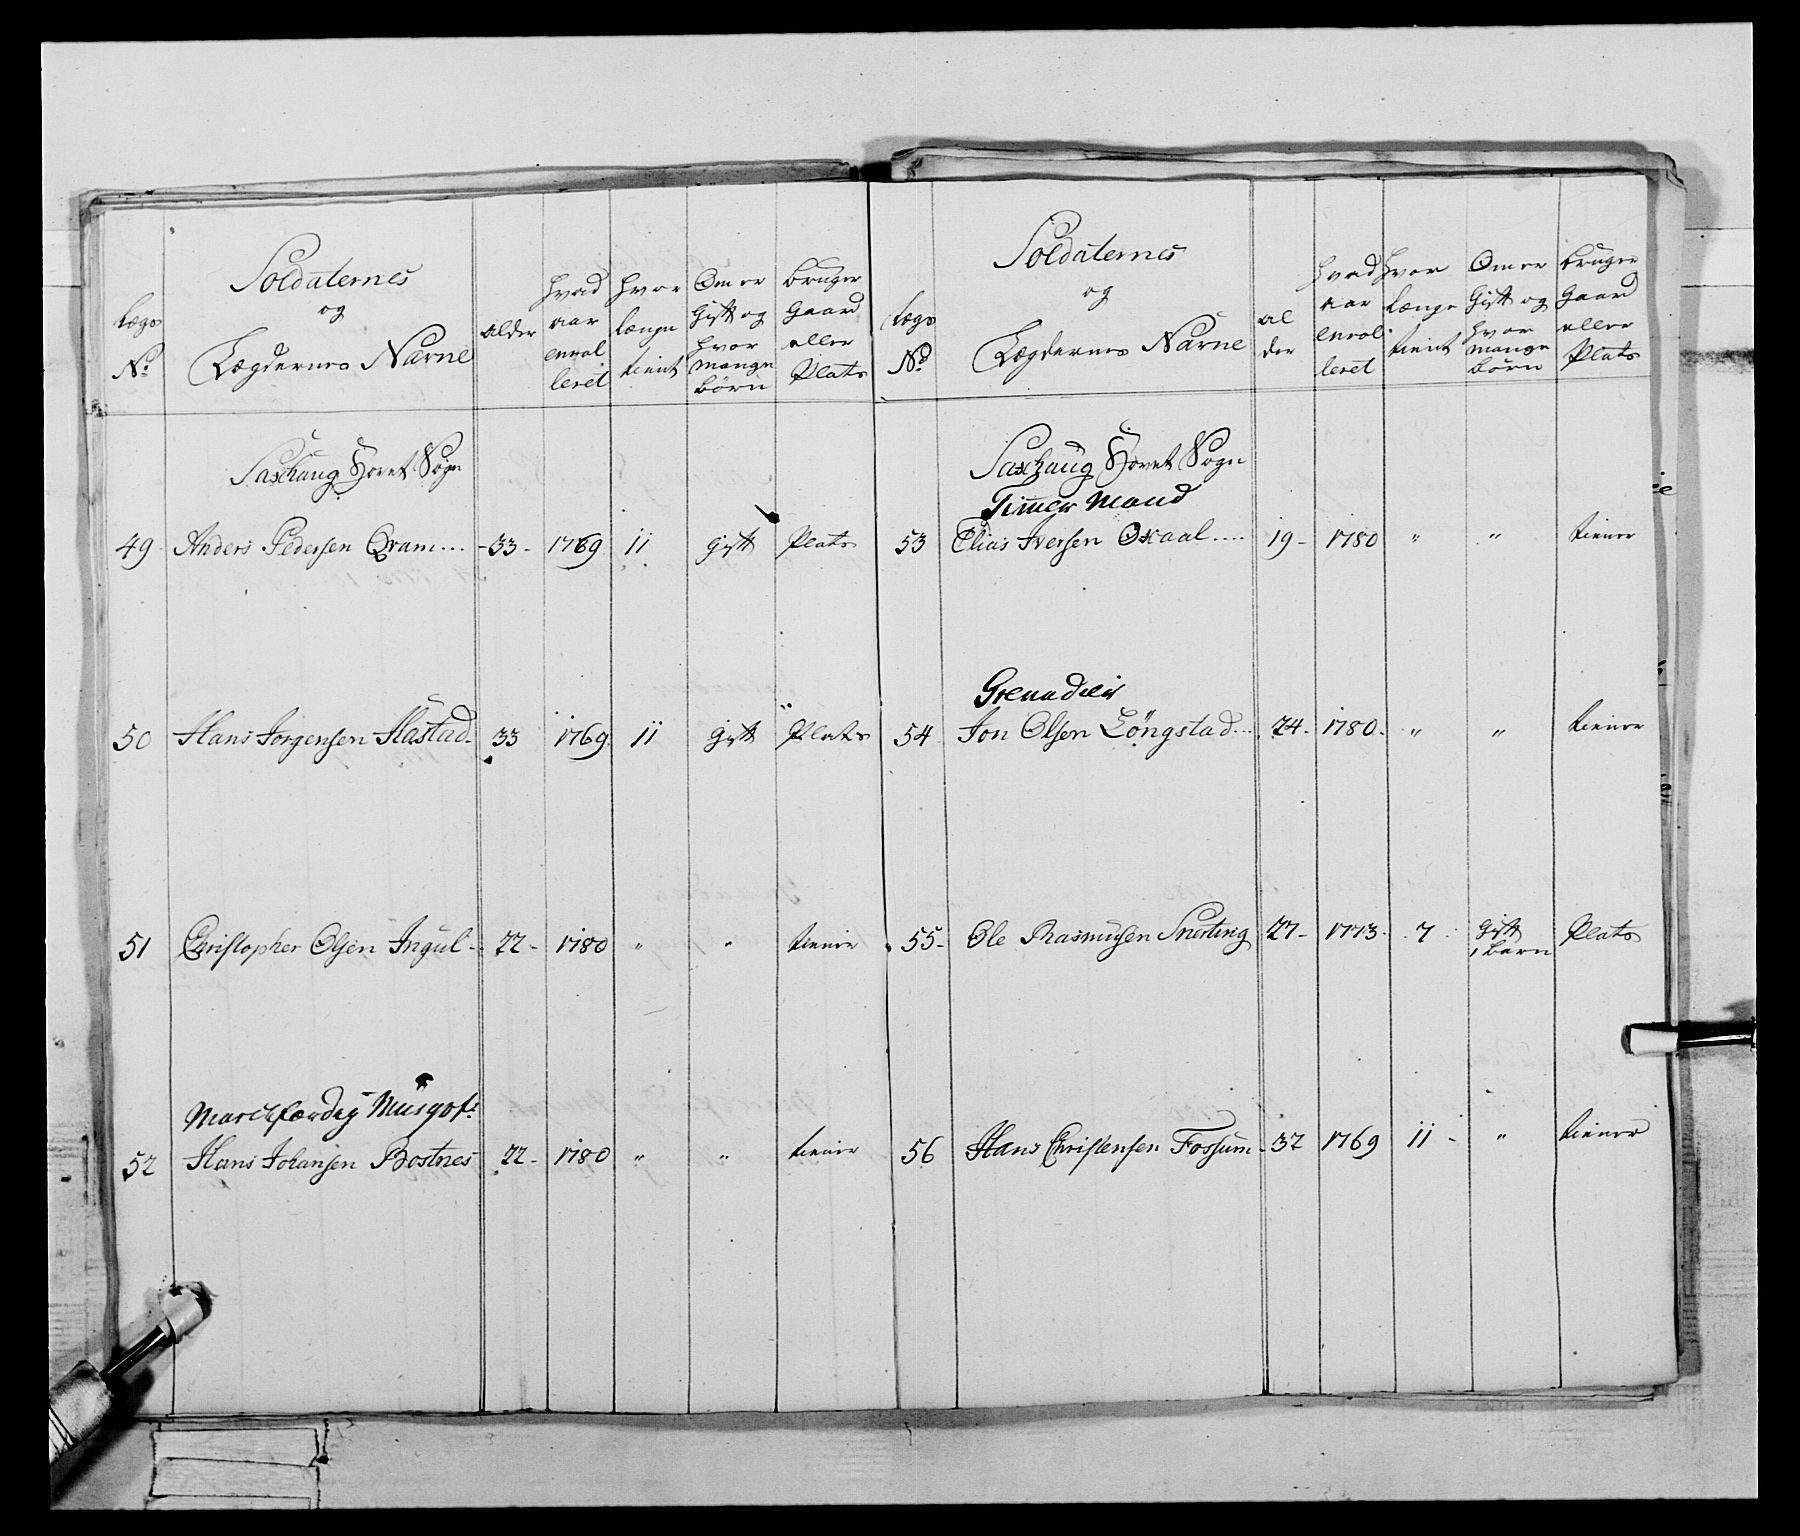 Lægs
No.
Soldaternes
og
Lægdernes Nafne
alder
hvad
aar
enrol
leret
hvor
længe
tient
Om er
Gift og
hvor
mange
börn
bruger
Gaard
eller
Plats
Saxhaug Hovet Sogn
49 Anders Pedersen Qvam... - 33 - 1769 11 Gift Plats
50 Hans Jorgensen Hastad - 33 1769 11 Gift Plats
51 Christopher Olsen Ingul - 22 - 1780 " " tiener
Marchfærdig Musqvt:
52 Hans Johansen Bostnes 22 - 1780 " " tiener
Lægs
No.
Soldaternes
og
Lægdernes Nafne
al
der
hvad
aar
enrol
leret
hvor
længe
tient
Om er
Gift og
hvor
mange
börn
bruger
Gaard
eller
Plats
Saxhaug Hovet Sogn
Timmer Mand
53 Elias Iversen Oxaal .... 19 - 1780 " " tiener
Grenadeir
54 Jon Olsen Löngstad ... 24 - 1780 - " " tiener
55 - Ole Rasmusen Snerting 27 - 1773 - 7 Gift Plats
1 barn
56 Hans Christensen Fossum - 37 1769 11 - " tiener